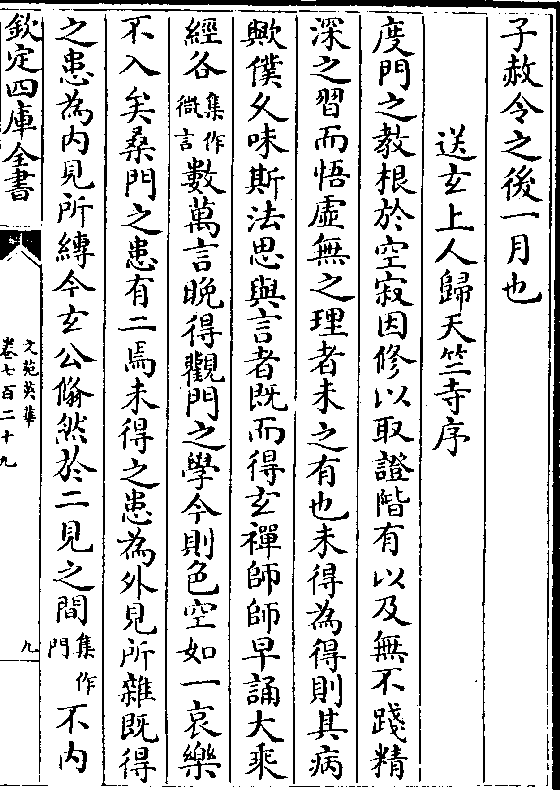 子赦令之後一月也
送玄上人歸天竺寺序
度門之教根於空寂因修以取證階有以及無不踐精
深之習而悟虛無之理者未之有也未得為得則其病
歟僕久味斯法思與言者既而得玄禪師師早誦大乘
經各集作微言數萬言晚得觀門之學今則色空如一哀樂
不入矣桑門之患有二焉未得之患為外見所雜既得
之患為内見所縳今玄公翛然於二見之間集作門不内
欽定四庫全書
文苑英華
卷七百二十九
九